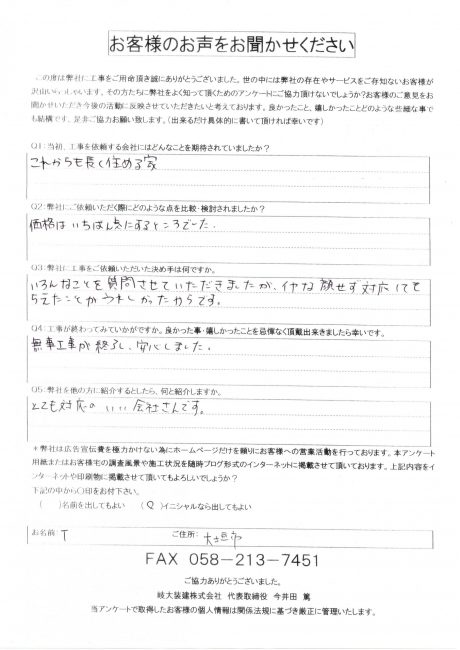 お客様のお声をお聞かせください
この度は弊社に工事をご用命頂き誠にありがとうございました。世の中には弊社の存在やサービスをご存知ないお客様が
沢山いらっしゃいます。その方たちに弊社をよく知って頂くためのアンケートにご協力頂けないでしょうか?お客様のご意見をお
聞かせいただき今後の活動に反映させていただきたいと考えております。良かったこと、嬉しかったことどのような些細な事で
も結構です。是非ご協力お願い致します。(出来るだけ具体的に書いて頂ければ幸いです)
Q1:当初、工事を依頼する会社にはどんなことを期待されていましたか?
これからも長く住める家
Q2:弊社にご依頼いただく際にどのような点を比較・検討されましたか?
価格はいちばん点にするところでした.
Q3:弊社に工事をご依頼いただいた決め手は何ですか。
いろんなことを質問させていただきましたが、イヤな顔せず対応しても
らえたことがうれしかったからです。
Q4:工事が終わってみていかがですか。良かった事・嬉しかったことを忌憚なく頂戴出来きましたら幸いです。
無事工事が終了し、安心しました.
Q5:弊社を他の方に紹介するとしたら、何と紹介しますか。
とても対応のいい会社さんです。
*弊社は広告宣伝費を極力かけない為にホームページだけを頼りにお客様への営業活動を行っております。本アンケート
用紙またはお客様宅の調査風景や施工状況を随時ブログ形式のインターネットに掲載させて頂いております。上記内容をイ
ンターネットや印刷物に掲載させて頂いてもよろしいでしょうか?
下記の中から○印をお付下さい。
( )名前を出してもよい (○)イニシャルなら出してもよい
お名前: T ご住所: 大垣市
FAX 058-213-7451
ご協力ありがとうございました。
岐大装建株式会社 代表取締役 今井田 篤
当アンケートで取得したお客様の個人情報は関係法規に基づき厳正に管理いたします。